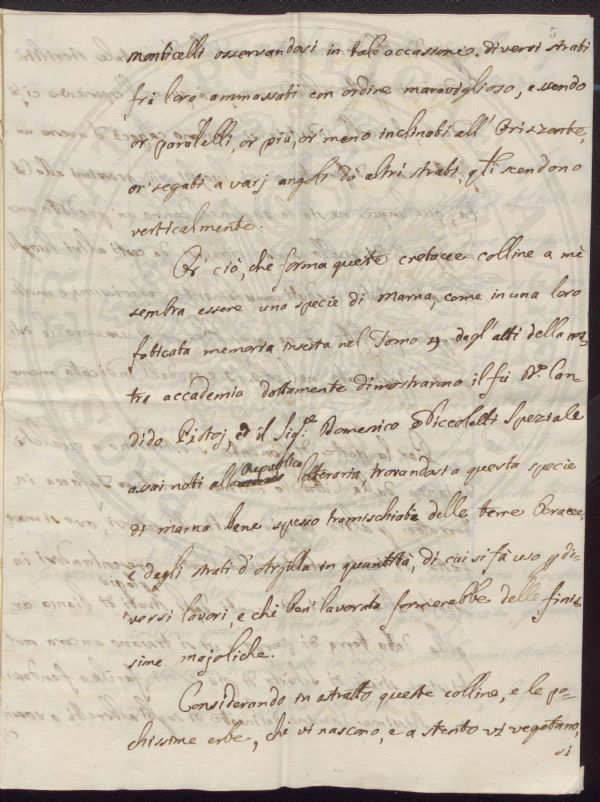 5
monticelli osservandosi in tale occassione diversi strati
frà loro ammassati con ordine maraviglioso, essendo
or' paralelli, or più, or' meno inclinati all' Orizzonte,
or' segati a varj angoli dà altri strati, q.li scendono
verticalmente.
Or' ciò, chè forma queste cretacee colline a mè
sembra essere una specie di Marna, come in una loro
faticata memoria inserita nel Tomo 4. degl'atti della no-
stra accademia dottamente dimostrarono il fù Dr. Can-
dido Pistoj, ed il Sig.re Domenico Piccoletti Speziale
assai noti alla Republica letteraria, trovandosi a questa specie
di marna bene spesso framischiate delle terre Ocracee,
e degli strati d'Argilla in quantità, di cui si fà uso p di-
versi lavori, e chè ben' lavorata formerebbe delle finis-
sime majoliche.
Considerando in astratto queste colline, e le po-
chissime erbe, chè vi nascono, e a stento vi vegetano,
si